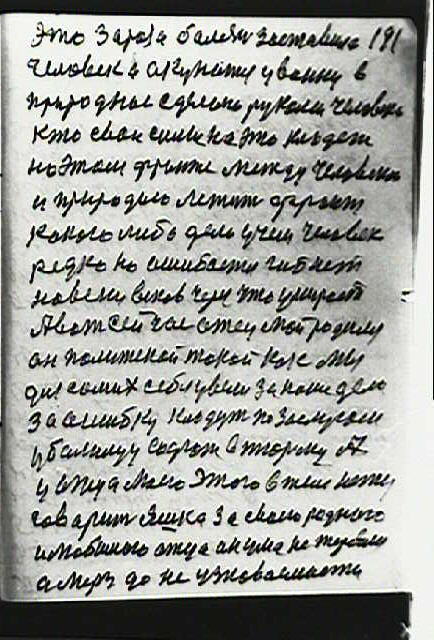 Это зараза болезни заставила 191
человека окунать у ванну в
природное сделано руками человека
кто свои силы на это кладет
на этом фронте между человеком
и природою лежит фронт
какого либо дела у чем человек
редко но ошибается гибнет
на веки веков через что умирает
А вот сейчас отец мой родный
он политжен такой как мы
для самих себя увели за наше дело
за ошибку кладут по заслугам
у больницу содют в тюрьму А
у отца мого этого в теле нету
говорит Яшка за свого родного
и любимого отца он ума не терял
а мерз до не узноваемости